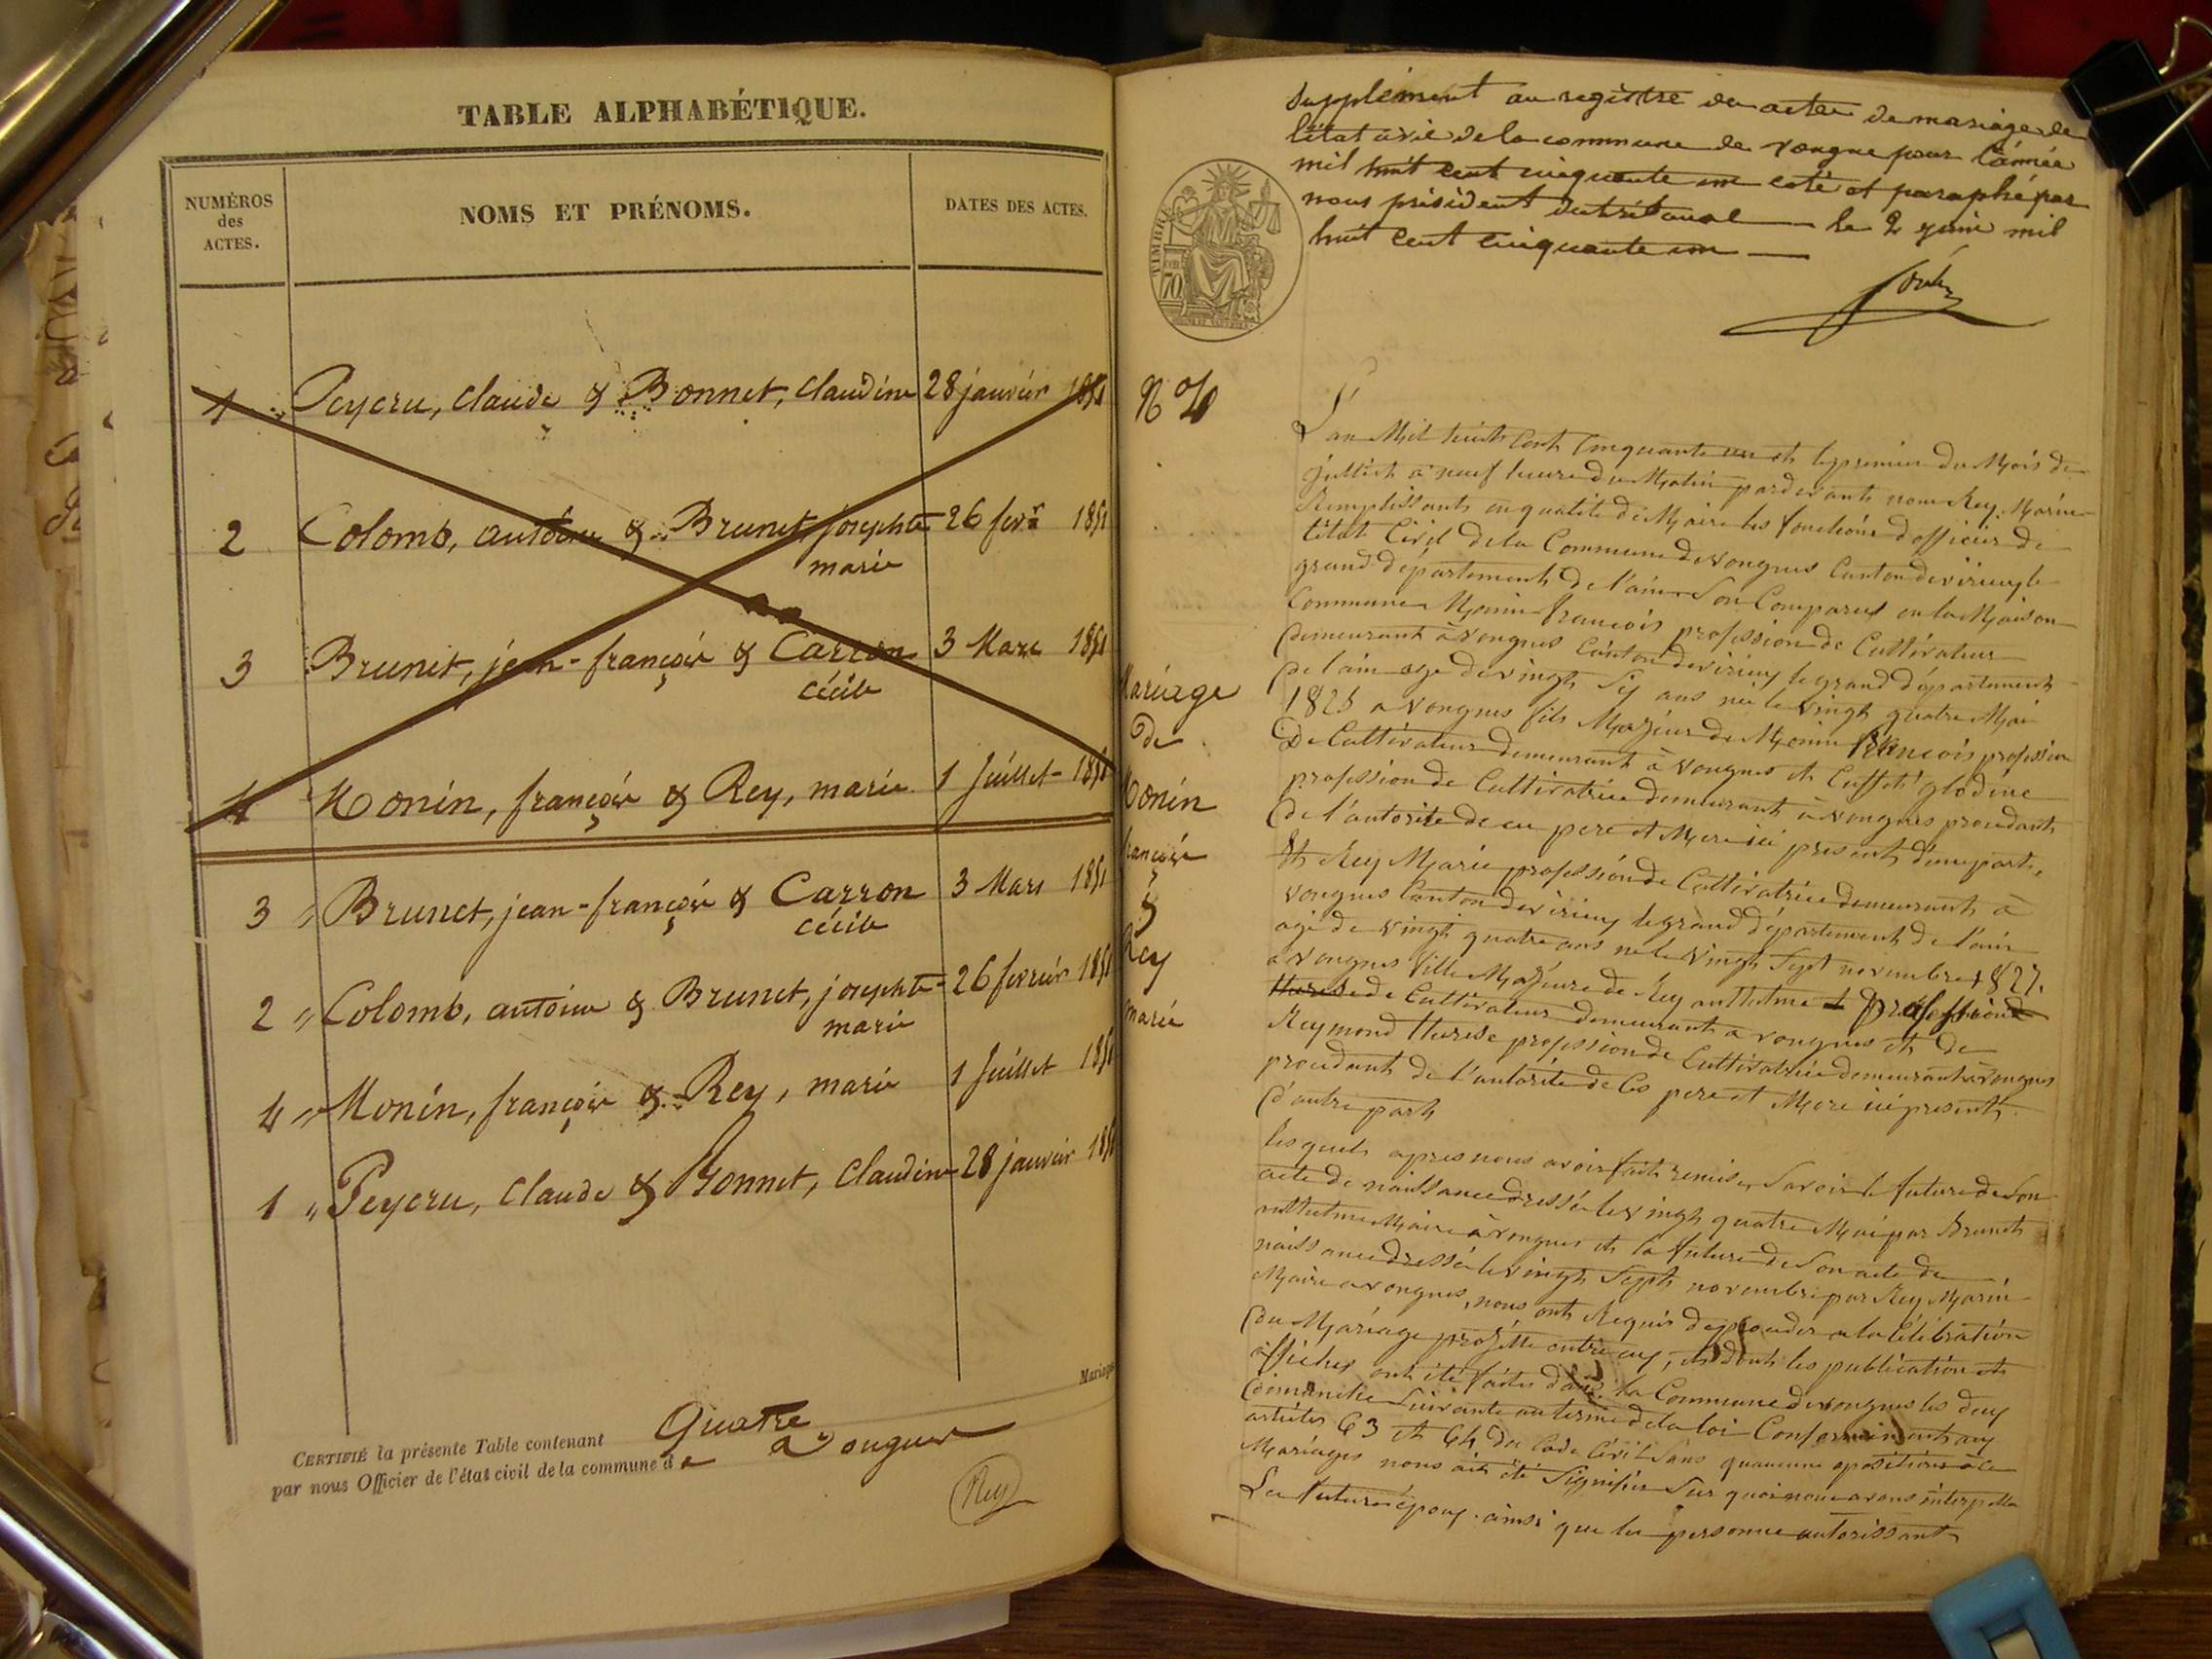 TABLE ALPHABÉTIQUE.
NUMÉROS des ACTES.
NOMS ET PRÉNOMS.
DATES DES ACTES.
1 Peycru, Claude & Bonnet, Claudine 28 janvier 1851
2 Colomb, antoine & Brunet, josephte 26 fevr 1851
marie
3 Brunet, jean-françois & Carron 3 Mars 1851
cécile
4 Monin, françois & Rey, marie 1 Juillet 1851
3 " Brunet, jean-françois & Carron 3 Mars 1851
cécile
2 " Colomb, antoine & Brunet, josephte 26 fevrier 1851
marie
4 " Monin, françois & Rey, marie 1 Juillet 1851
1 " Peycru, Claude & Bonnet, Claudine 28 janvier 1851
Mariages
CERTIFIÉ la présente Table contenant Quatre
par nous Officier de l'état civil de la commune d a Vongnes
Rey
supplément au registre des actes de mariage de
l'état civil de la commune de vongne pour l'année
mil huit cent cinquante un coté et paraphé par
nous président du tribunal le 2 juin mil
huit cent cinquante un
TIMBRE
70
N° 4
Mariage
de
Monin
françois
&
Rey
marie
L'an Mil huit Cent Cinquante un et le premier du Mois de
Juillet a neuf heure du Matin pardevant nous Rey Marin
Remplissant en qualité de Maire les fonctions d'officier de
l'état Civil de la Commune de vongnes Canton de virieu le
grand département de l'ain Son Comparus en la Maison
Commune Monin francois profession de Cultivateur
demeurant à vongnes Canton de virieu le grand département
de l'ain age de vingt Six ans née le vingt quatre Mai
1825 a vongnes fils Majeur de Monin francois profession
De Cultivateur demeurant à vongnes et Cusset glodine
profession de Cultivatrice demeurant à vongnes procedant
de l'autorité de ces pere et Mere ici present d'une part,
Et Rey Marie profession de Cultivatrice demeurant à
vongnes Canton de virieu le grand département de l'ain
agé de vingt quatre ans ne le vingt Sept novembre 1827.
a vongnes fille Majeure de Rey anthelme profession
de Cultivateur demeurant a vongnes et de
Reymond therese profession de Cultivatrice demeurant à vongnes
procedant de l'autorité de Ces pere et Mere ici present
d'autre part
lesquels apres nous avoir fait remise, Savoir le future de Son
acte de naissance dressé le vingt quatre Mai par Brunet
anthelme Maire à vongnes et la future de Son acte de
naissance dressé le vingt Sept novembre par Rey Marin
Maire a vongnes, nous ont Requis de proceder a la Célébration
du Mariage projetté entre eux, et dont les publication et
affiches ont été faites dans la Commune de vongnes les deux
dimanche Suivante au terme de la loi Conformement aux
articles 63 et 64 du Code Civil Sans qu'aucune opositions a ce
Mariages nous ait été Signifié Sur quoi nous avons interpellé
Les futurs époux ainsi que les personne autorissant